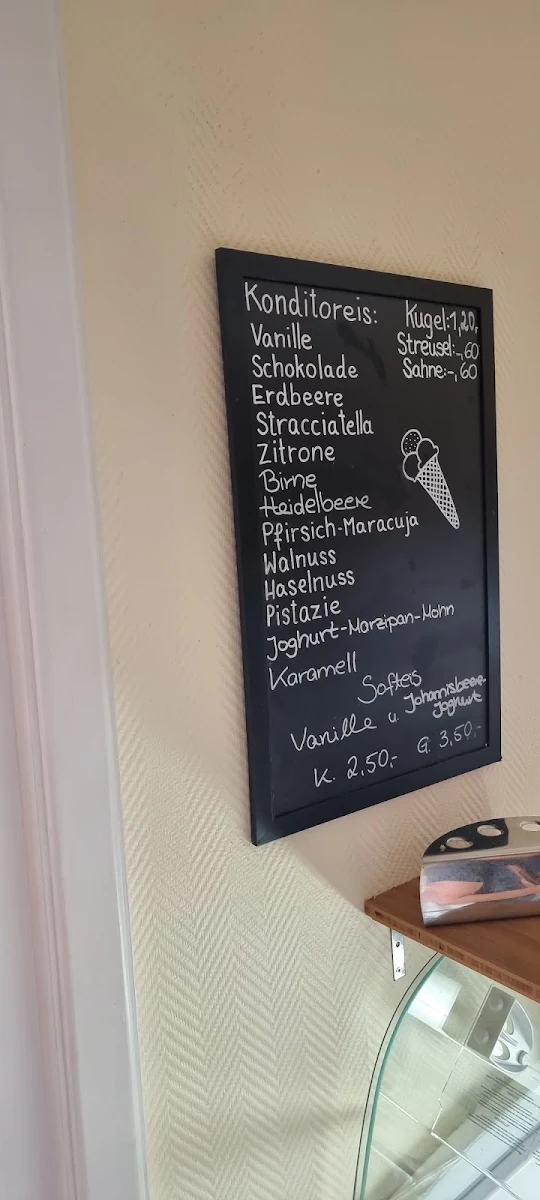 Konditoreis: Kugel:1,20,
Vanille Streusel:-,60
Schokolade Sahne:-,60
Erdbeere
Stracciatella
Zitrone
Birne
Heidelbeere
Pfirsich-Maracuja
Walnuss
Haselnuss
Pistazie
Joghurt-Marzipan-Mohn
Karamell
Softeis
Vanille u. Johannisbeere-
Joghurt
K. 2,50,- G. 3,50,-